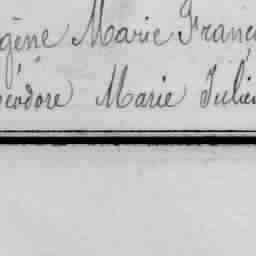 gène Marie Franç
éodore Marie Julie